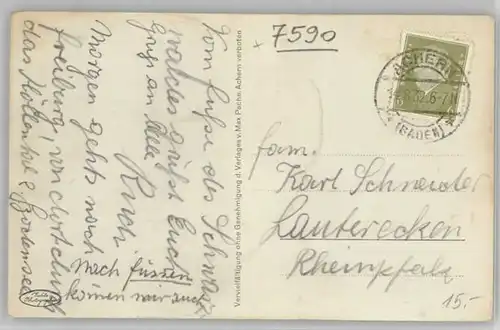 Vom Fuße des Schwarz-
waldes grüßt Euch
Gruß an Alle
Rudi
Morgen gehts nach
Freiburg, von dort durch
das Höllental z. Bodensee
Nach Füssen
kommen wir auch
Vervielfältigung ohne Genehmigung d. Verlages v. Max Puche, Achern verboten
7590
ACHERN
32.6-7
(BADEN)
Fam.
Karl Schneider
Lauterecken
Rheinpfalz
15.-